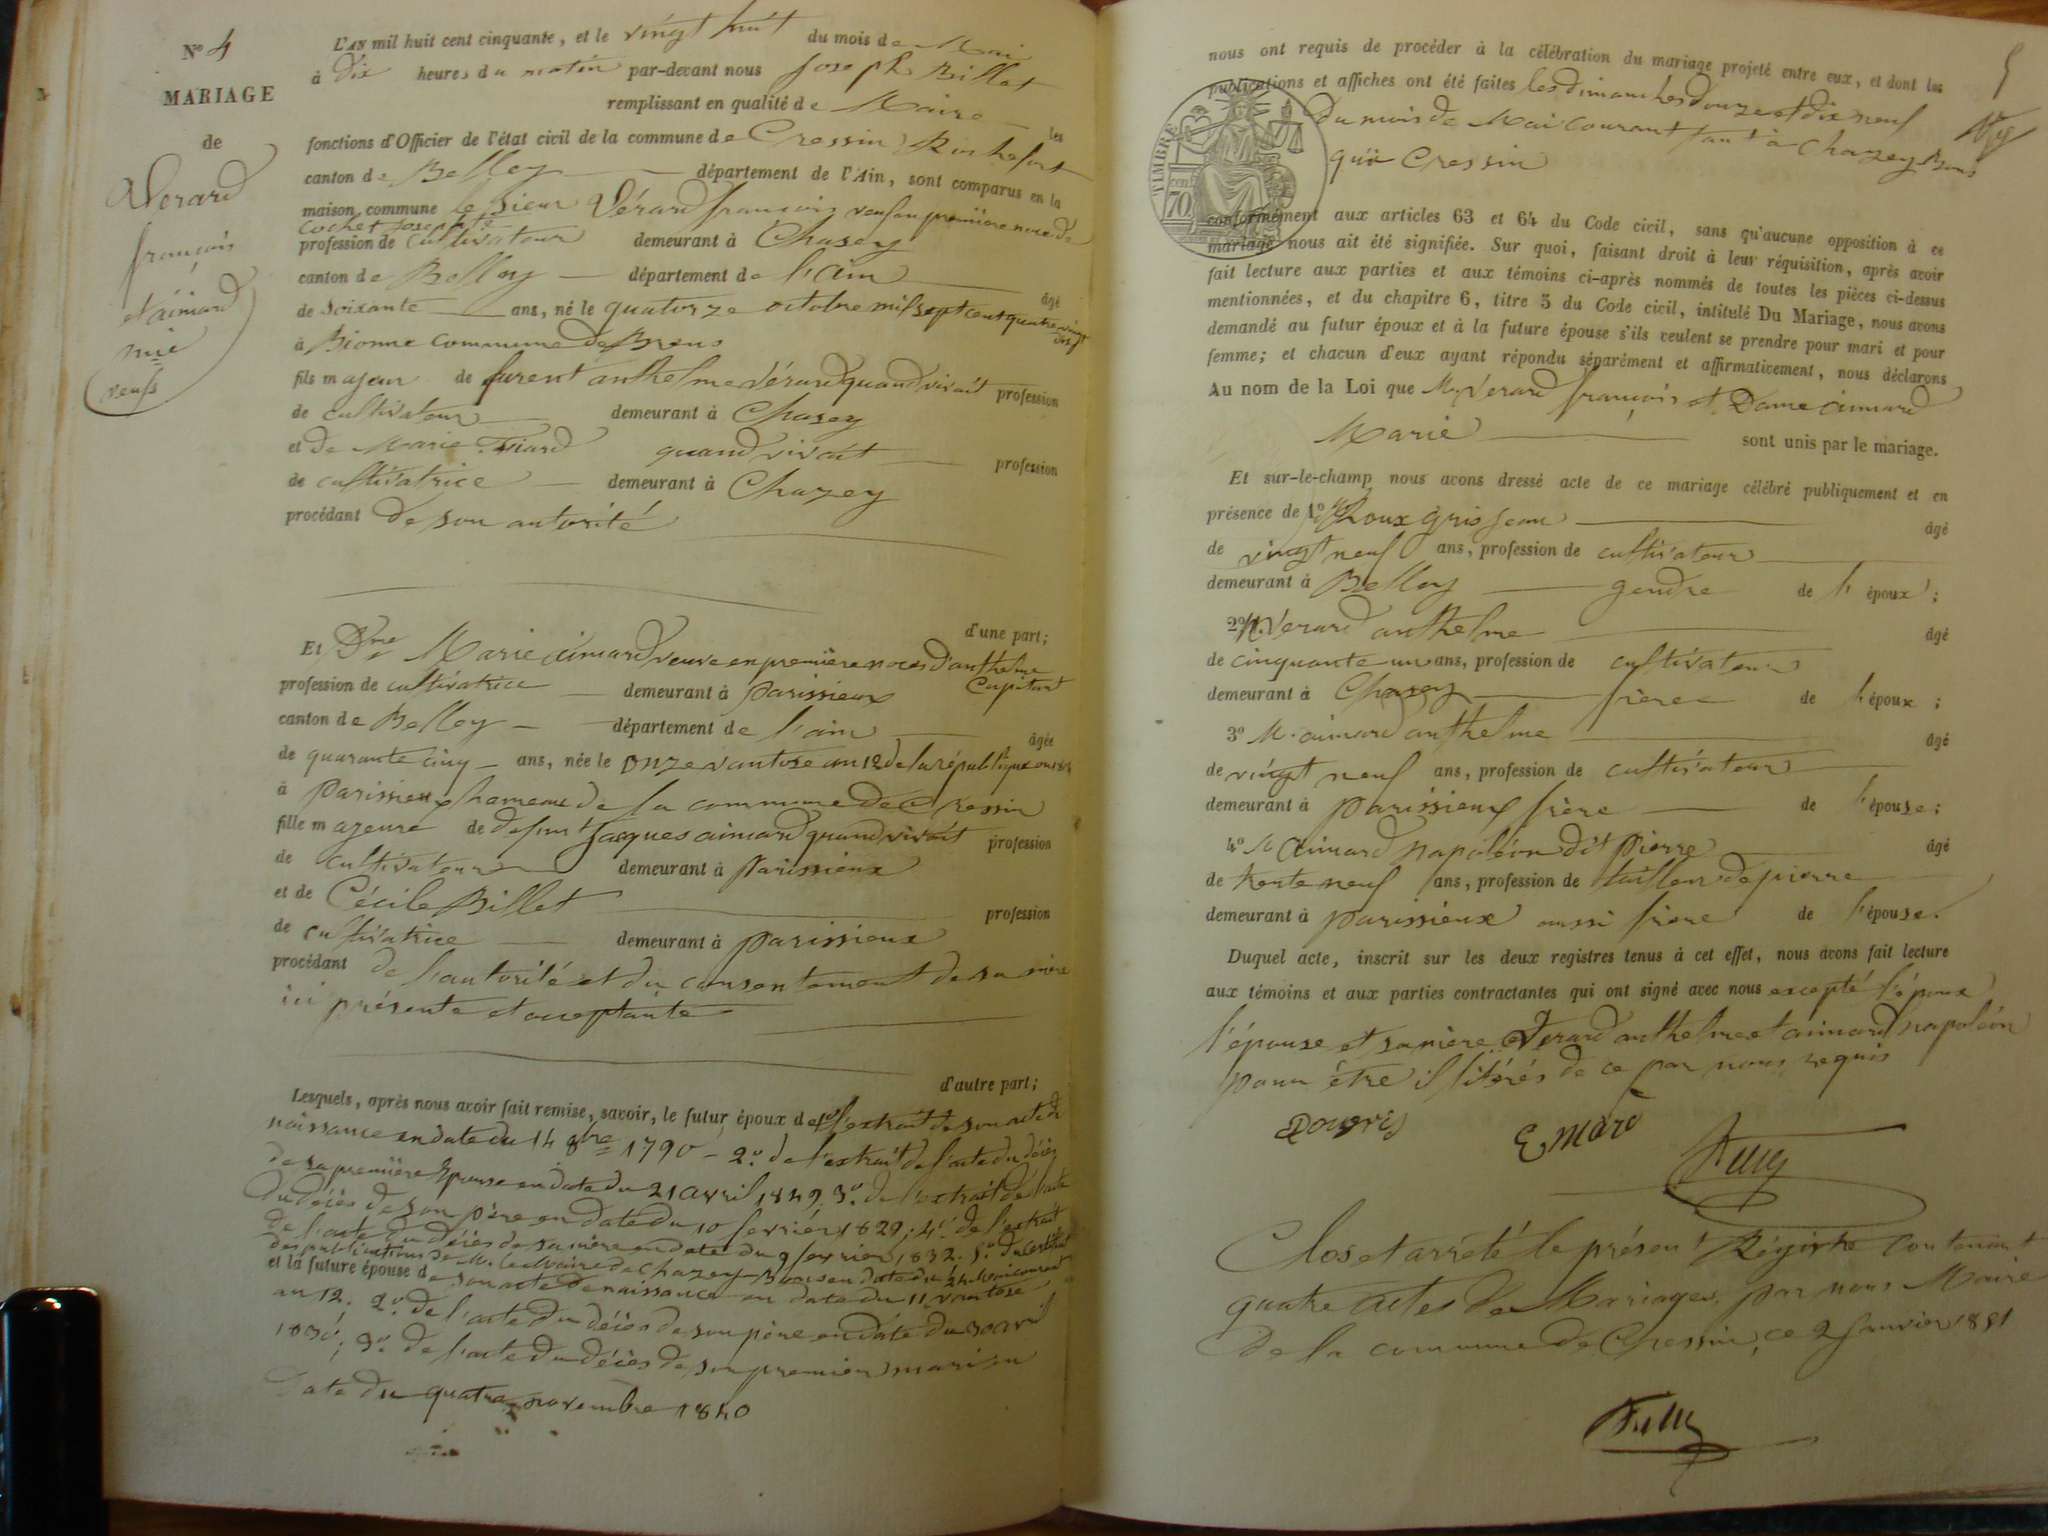 N° 4
MARIAGE
de
Verard
françois
et aimard
veufs
L'AN mil huit cent cinquante, et le vingt huit du mois de Mai
à Dix heures du matin par-devant nous Joseph Billet
remplissant en qualité de Maire les
fonctions d'Officier de l'état civil de la commune de Cressin Rochefort
canton de Belley département de l'Ain, sont comparus en la
maison commune le Sieur Vérard françois veuf en première noce de
Cochet Josephte
profession de cultivateur demeurant à Chazey
canton de Belley département de l'ain âgé
de soixante ans, né le quatorze octobre mil sept cent quatre vingt dix
à Bionne commune de Brens
fils majeur de furent anthelme Vérard quand vivait profession
de cultivateur demeurant à Chazey
et de Marie quand vivait profession
de cultivatrice demeurant à Chazey
procédant de son autorité
d'une part;
Et Dme Marie aimard veuve en première noces d'anthelme
profession de cultivatrice demeurant à parissieux
canton de Belley département de l'ain âgée
de quarante cinq ans, née le onze vantose an 12 de la république
à parissieux hameau de la commune de Cressin
fille majeure de defunt Jacques aimard quand vivait profession
de cultivateur demeurant à parissieux
et de Cécile Billet profession
de cultivatrice demeurant à parissieux
procédant de l'autorité et du consentement de sa mère
ici présente et acceptante
d'autre part;
Lesquels, après nous avoir fait remise, savoir, le futur époux de 1° l'extrait de son acte de
naissance en date du 14 8bre 1790 - 2° de l'extrait de l'acte du décès
de sa première Epouse en date du 21 avril 1849, 3° de l'extrait de l'acte
du décès de son père en date du 10 février 1829; 4° de l'extrait
de l'acte du décès de sa mère en date du 9 fevrier 1832. 5° du certificat
des publications de M. le Maire de Chazey-Bons en date du 24 Mai courant
et la future épouse de son acte de naissance en date du 11 vantose
an 12. 2° de l'acte du décès de son père en date du 30 avril
1830; 3° de l'acte du décès de son premier mari en
date du quatre novembre 1840
5
nous ont requis de procéder à la célébration du mariage projeté entre eux, et dont les
publications et affiches ont été faites les dimanches douze et dix neuf
du mois de Mai courant tant à Chazey Bons
qu'à Cressin
TIMBRE
70 cent
conformément aux articles 63 et 64 du Code civil, sans qu'aucune opposition à ce
mariage nous ait été signifiée. Sur quoi, faisant droit à leur réquisition, après avoir
fait lecture aux parties et aux témoins ci-après nommés de toutes les pièces ci-dessus
mentionnées, et du chapitre 6, titre 5 du Code civil, intitulé Du Mariage, nous avons
demandé au futur époux et à la future épouse s'ils veulent se prendre pour mari et pour
femme; et chacun d'eux ayant répondu séparément et affirmativement, nous déclarons
Au nom de la Loi que Mr Verard françois et Dame aimard
Marie sont unis par le mariage.
Et sur-le-champ nous avons dressé acte de ce mariage célébré publiquement et en
présence de 1° Gris Jean âgé
de vingt neuf ans, profession de cultivateur
demeurant à Belley gendre de l'époux;
2° M. Verard anthelme âgé
de cinquante un ans, profession de cultivateur
demeurant à Chazey frère de l'époux;
3° M. aimard anthelme âgé
de vingt neuf ans, profession de cultivateur
demeurant à parissieux frère de l'épouse;
4° M aimard napoléon dit pierre âgé
de trente neuf ans, profession de tailleur de pierre
demeurant à parissieux aussi frère de l'épouse.
Duquel acte, inscrit sur les deux registres tenus à cet effet, nous avons fait lecture
aux témoins et aux parties contractantes qui ont signé avec nous excepté l'époux
l'épouse et sa mère Verard anthelme et aimard napoléon
pour être illitérés de ce par nous requis
Emard
Clos et arrêté le présent Régistre contenant
quatre actes de Mariages, par nous Maire
de la commune de Cressin, ce 2 Janvier 1851